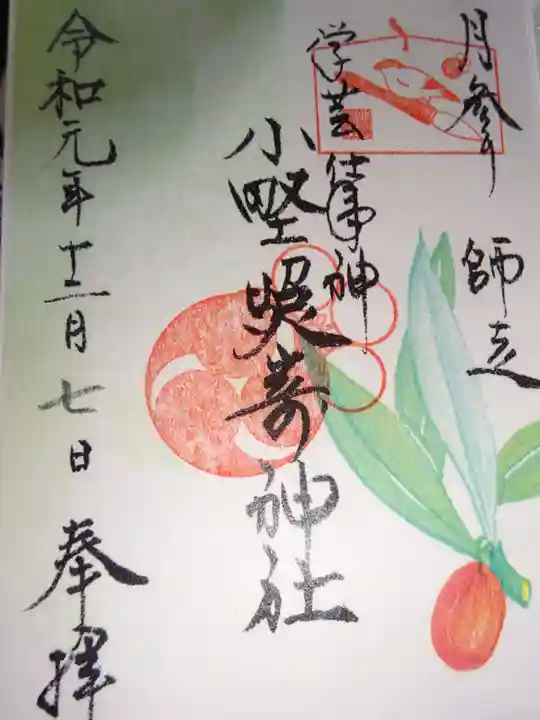 月参 師走
学芸 仕事神
小野照崎神社
令和元年十二月七日 奉拝